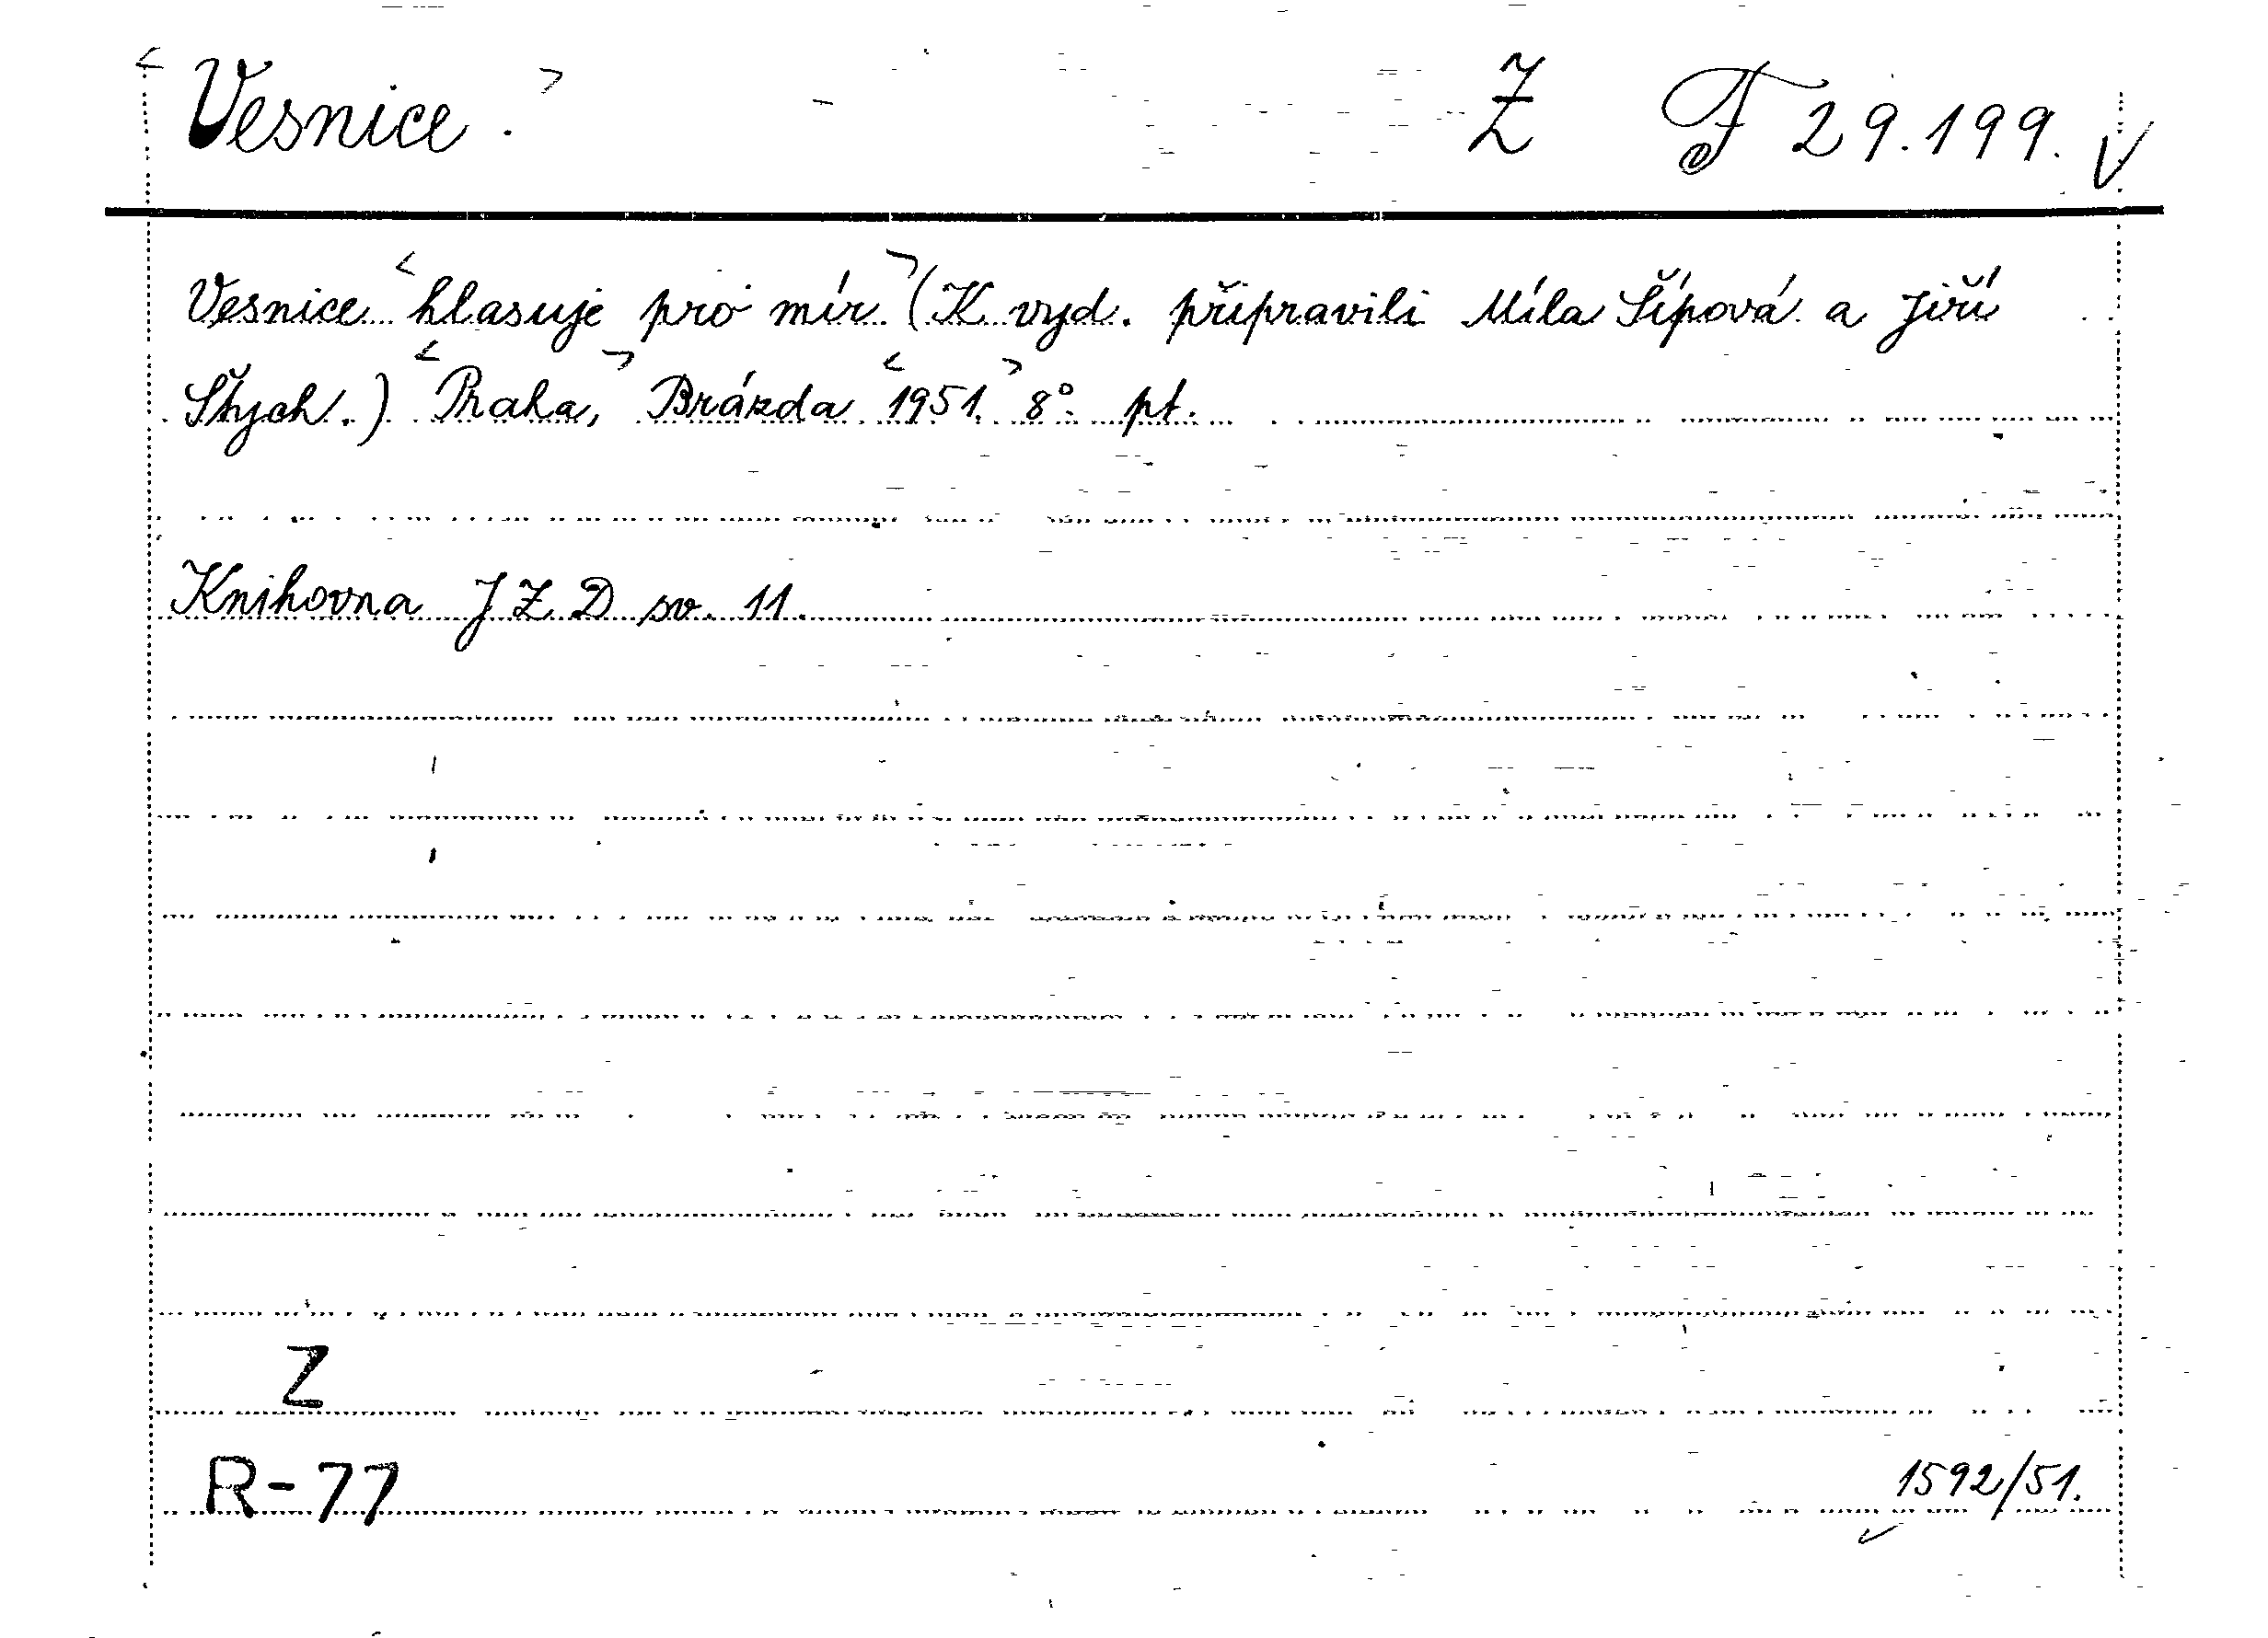 Vesnice. Z F 29.199.
Vesnice hlasuje pro mír (K vyd. připravili Míla Šípová a Jiří
Štych.) Praha, Brázda 1951. 8°. pt.
Knihovna JZD sv. 11.
Z
R-77
1592/51.